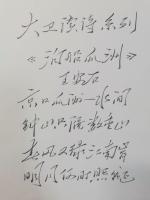 大卫读诗系列
《泊船瓜洲》
王安石
京口瓜洲一水间
钟山只隔数重山
春风又绿江南岸
明月何时照我还